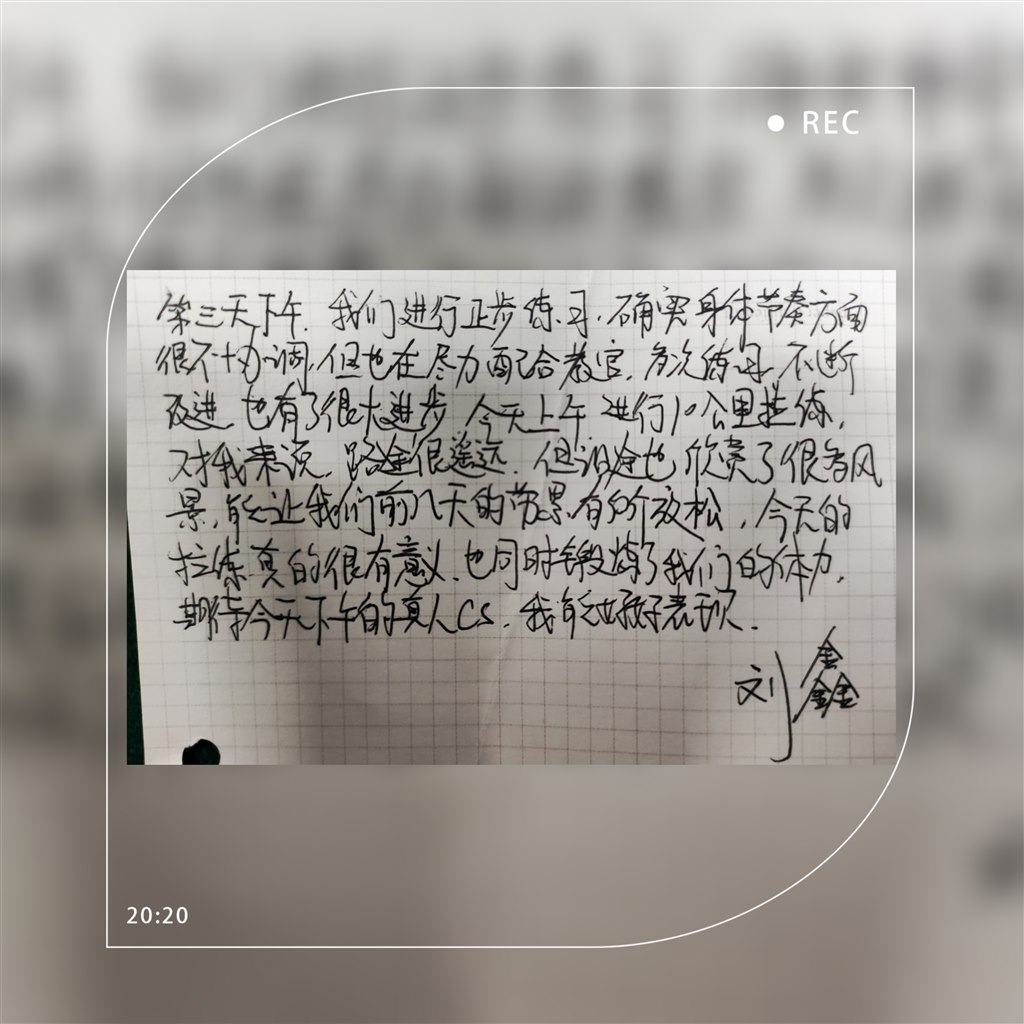 REC
第三天下午，我们进行正步练习，确实身体节奏方面
很不协调，但也在尽力配合教官，多次练习，不断
改进，也有了很大进步，今天上午进行10公里拉练，
对我来说，路途很遥远，但沿途也欣赏了很多风
景，能让我们前几天的劳累有所放松，今天的
拉练真的很有意义，也同时锻炼了我们的体力，
期待今天下午的真人CS，我能好好表现．
刘鑫
20:20